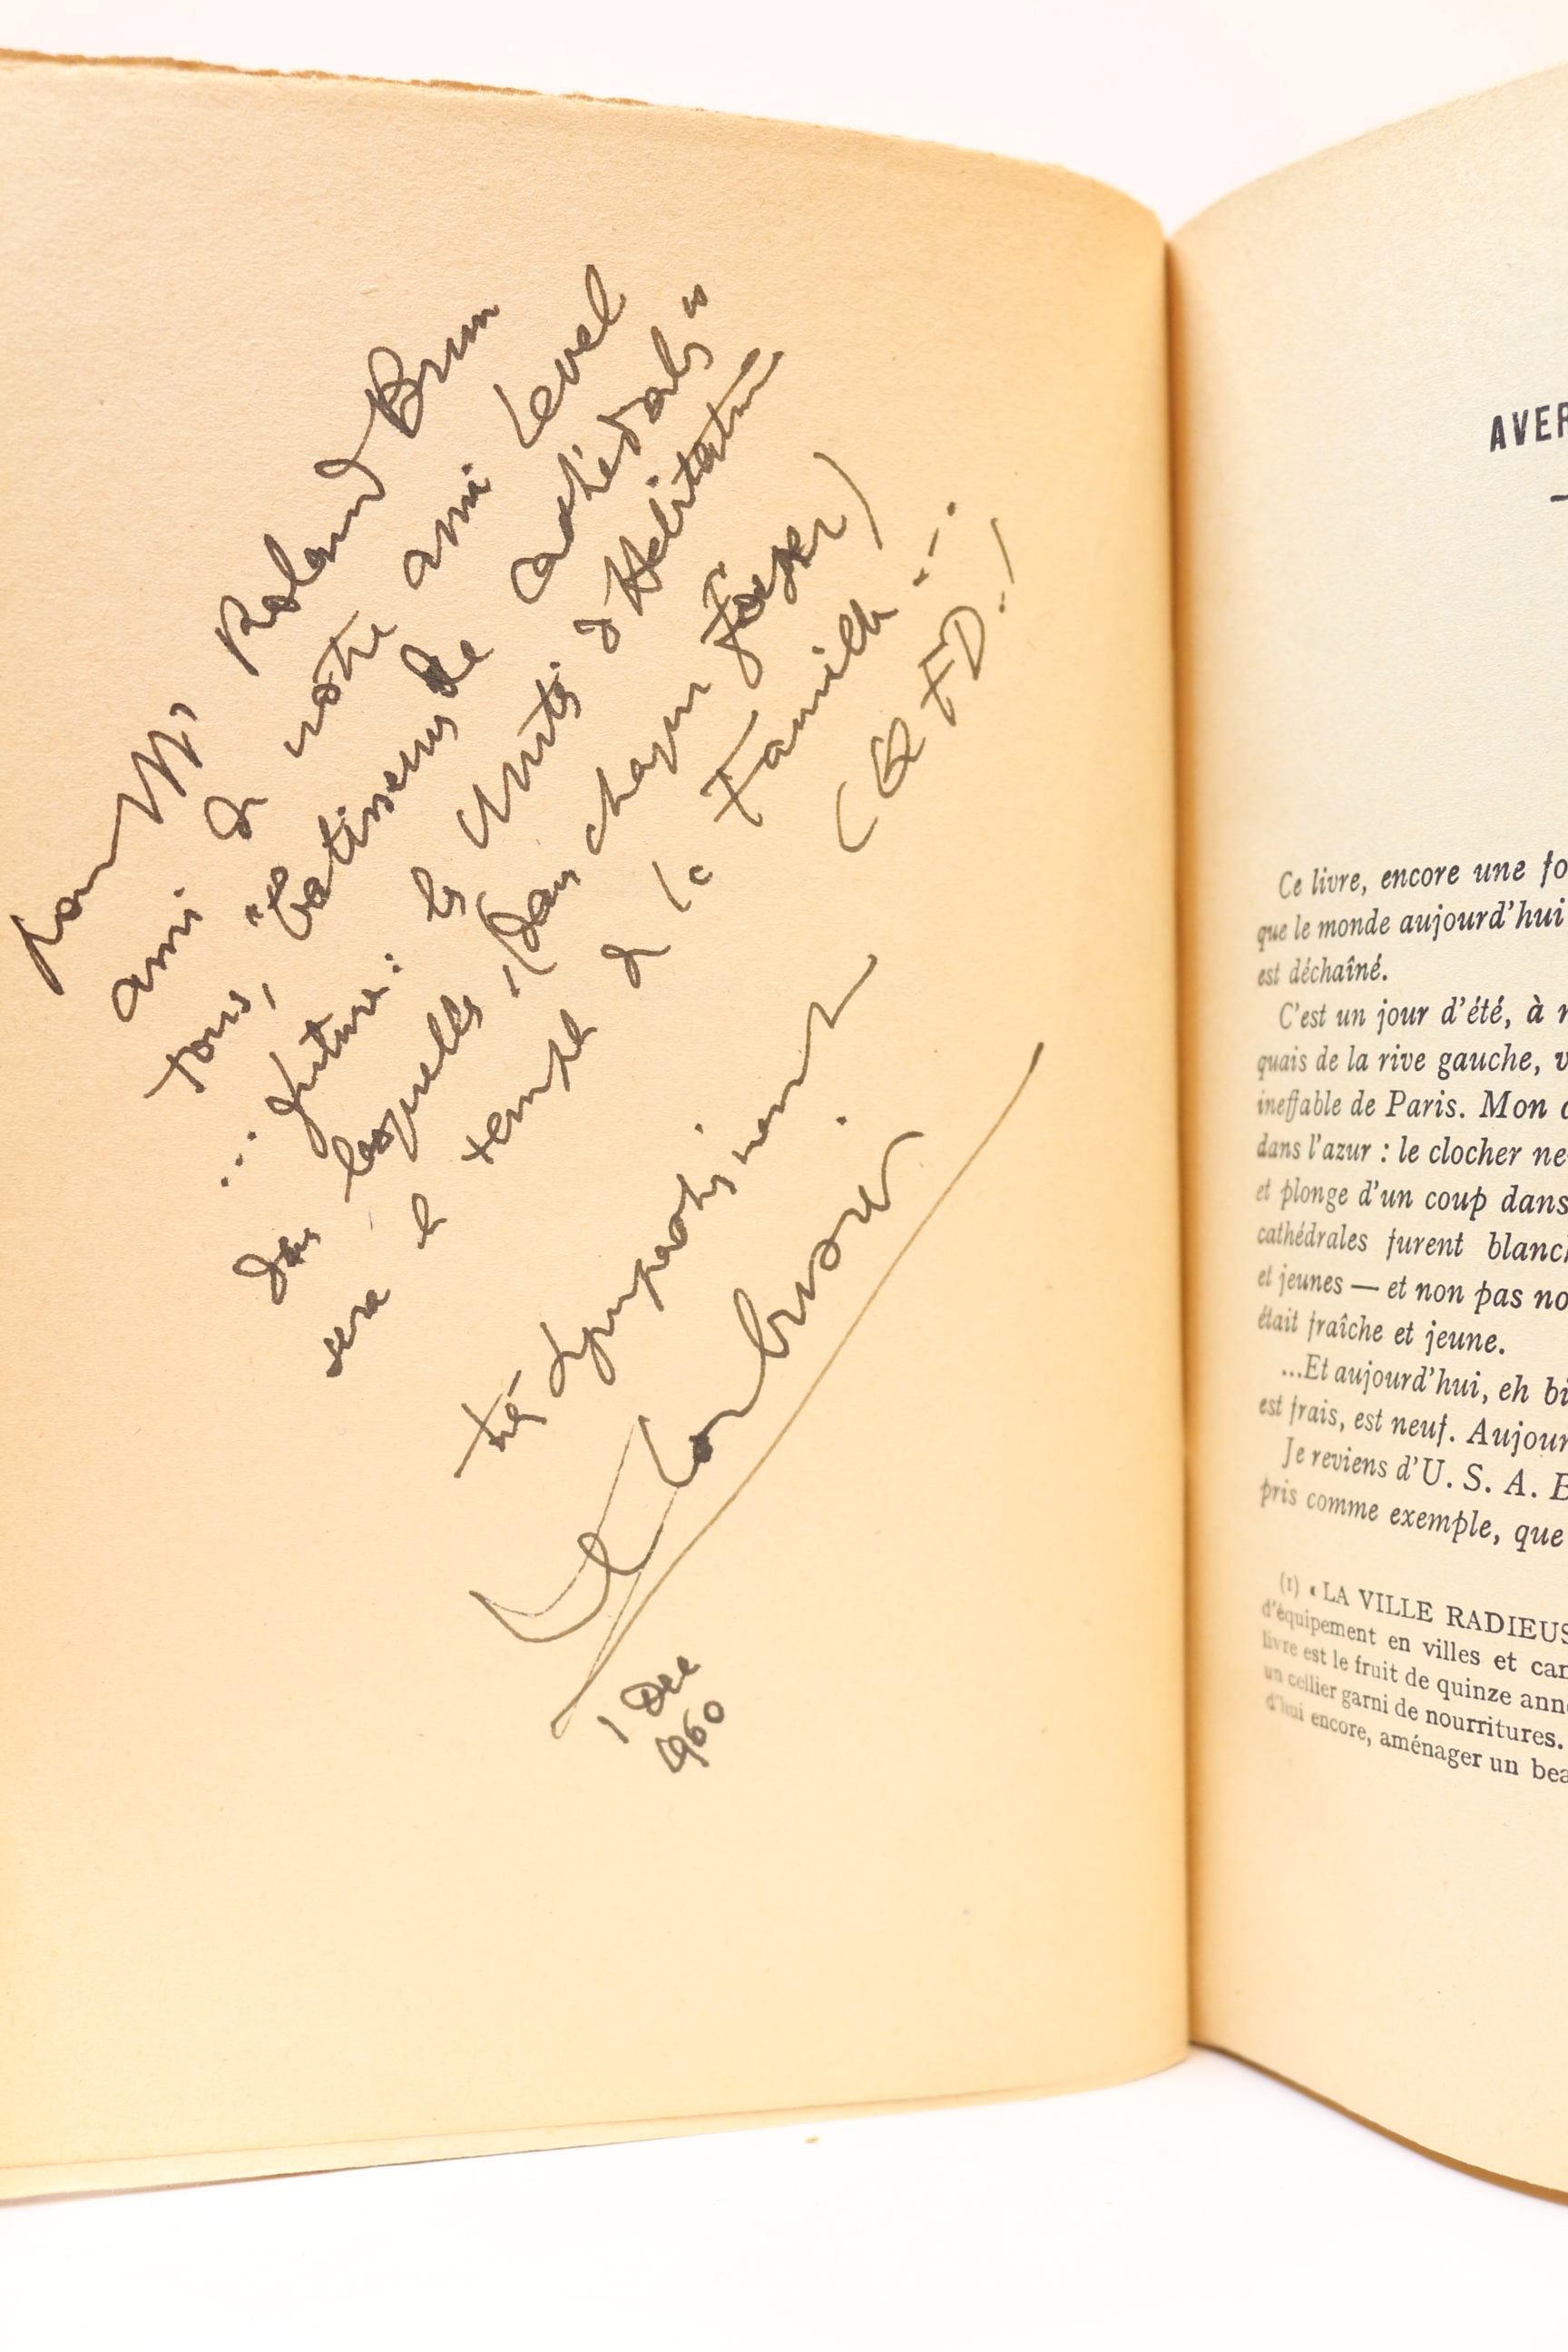 Pour Mr Roland Brun
ami de notre ami Level
tous, "es batisseurs de cathédrales"
... future : les Unités d'Habitation
dans lesquelles - (dans chaque foyer)
sera le temple de la Famille ...
(CQFD.)
très sympathiquement
Le Corbusier
1 Dec
960
AVER
Ce livre, encore une fo
que le monde aujourd'hui
est déchaîné.
C'est un jour d'été, à
quais de la rive gauche, v
ineffable de Paris. Mon
dans l'azur : le clocher ne
et plonge d'un coup dans
cathédrales furent blanch
et jeunes — et non pas no
était fraîche et jeune.
...Et aujourd'hui, eh bi
est frais, est neuf. Aujour
Je reviens d'U. S. A. E
pris comme exemple, que
(1) « LA VILLE RADIEUS
d'équipement en villes et cam
livre est le fruit de quinze ann
un cellier garni de nourritures.
d'hui encore, aménager un bea